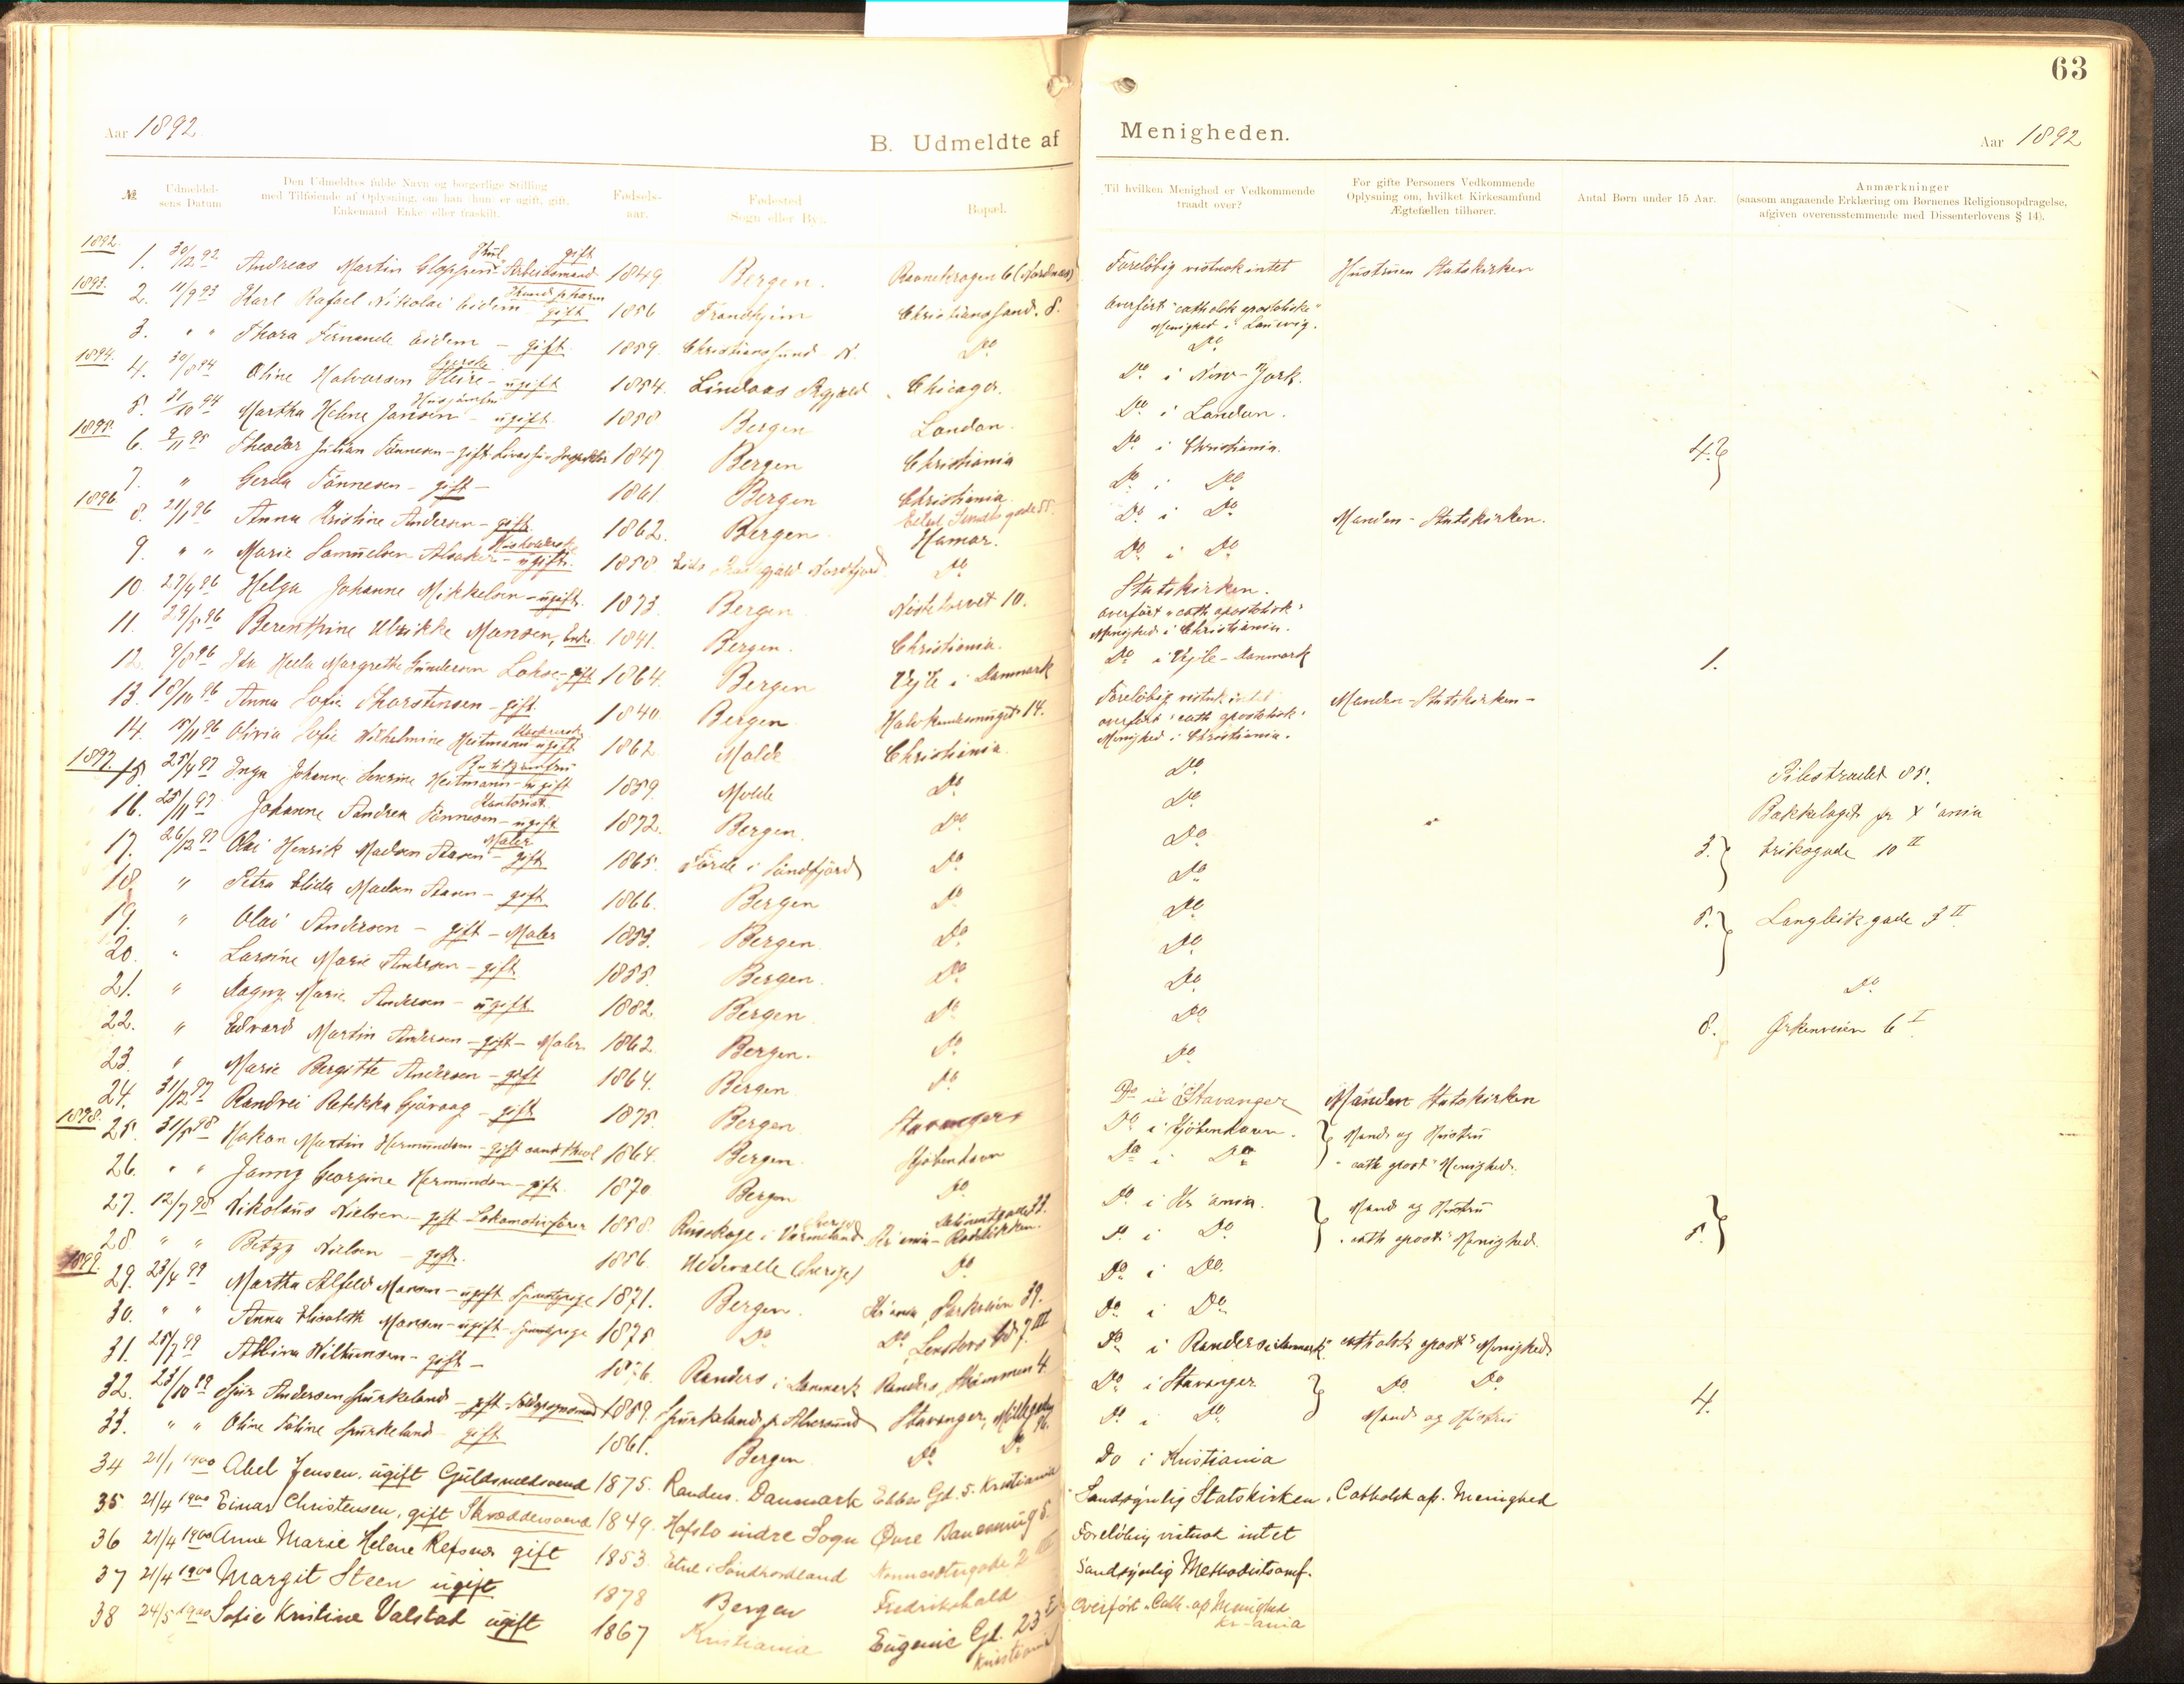 63
Aar 1892
B. Udmeldte af Menigheden.
Aar 1892
№
Udmeldel-
sens Datum
Den Udmeldtes fulde Navn og borgerlige Stilling
med Tilføiende af Oplysning, om han (hun) er ugift, gift,
Enkemand, Enke eller fraskilt.
Fødsels-
aar.
Fødested
(Sogn eller By).
Bopæl.
Til hvilken Menighed er Vedkommende
traadt over?
For gifte Personers Vedkommende
Oplysning om, hvilket Kirkesamfund
Ægtefællen tilhører.
Antal Børn under 15 Aar.
Anmærkninger
(saasom angaaende Erklæring om Børnenes Religionsopdragelse,
afgiven overensstemmende med Dissenterlovens § 14).
1892.
1. 30/12 92 Andreas Martin Gloppen Arbeidsmand gift 1849 Bergen. Ravnekrogen 6 (Nordnæs) Foreløbig vistnok intet Hustruen Statskirken
1893.
2. 11/9 93 Karl Rafael Nikolai Eidem gift 1856 Trondhjem Christianssand. S. Overført "catholsk apostoliske"
Menighed i Laurvig.
3. " " Thora Fernande Eidem - gift 1859. Christianssund N. Do Do
1894.
4. 30/8 94 Oline Halvorsen - ugift 1854. Lindaas Chicago. Do i New-York.
5. 31/10 94 Martha Helene Jansen - ugift 1858 Bergen London. Do i London.
1895.
6. 9/11 95 Theodor Julian Tønnesen - gift 1847 Bergen Christiania Do i Christiania. 4.
7. " Gerda Tønnesen - gift - 1861 Bergen Christiania Do i Do
1896
8. 21/1 96 Anna Kristine Andersen - gift 1862. Bergen Do i Do Manden - Statskirken.
9. " " Marie Samuelsen Husholderske - ugift. 1858 Nordfjord Hamar. Do i Do
10. 27/4 96 Helga Johanne Mikkelsen - ugift. 1873 Bergen. Nøstetorvet 10. Statskirken.
11. 29/5 96 Berenthine Ulrikke Monsen, Enke. 1841. Bergen. Christiania. overført "cath. apostolisk"
Menighed i Christiania.
12. 9/8 96 Ida Margrethe Gundersen Lohse - gift 1864. Bergen Vejle i Danmark Do i Vejle - Danmark 1.
13. 18/10 96 Anna Sofie Thorstensen - gift 1840 Bergen 14. Foreløbig vistnok intet Manden - Statskirken -
14. 15/11 96 Olivia Sofie Wilhelmine Heitmann ugift 1862 Molde Christiania overført "cath apostolisk"
Menighed i Christiania.
1897.
15. 25/4 97 Inga Johanne Severine Heitmann - ugift 1859. Molde Do Do Pilestrædet 85.
16. 25/11 97 Johanne Andrea Tønnesen - ugift Kontorist. 1872. Bergen. Do Do Bækkelaget pr X'ania
17. 26/12 97 Olai Henrik Madsen Aasen - gift Maler 1865. Førde i Søndfjord Do Do 3. Eriksgade 10 II
18. " Petra Elida Madsen Aasen - gift 1866. Bergen Do Do
19. " Olai Andersen - gift - Maler 1853. Bergen Do Do 5. Langleikgade 3 II
20. " Larsine Marie Andersen - gift 1855. Bergen. Do Do
21. " Dagny Marie Andersen - ugift 1882 Bergen Do Do Do
22. " Edvard Martin Andersen - gift - Maler 1862 Bergen. Do Do 8. Ørkenveien 6 I
23. " Marie Bergitte Andersen - gift 1864. Bergen Do Do
24. 31/12 97 Randvei Rebekka - gift 1875. Bergen Stavanger Do i Stavanger Manden Statskirken
1898.
25. 31/5 98 Hakon Martin Hermundsen - gift cand theol 1864. Bergen. Kjøbenhavn Do i Kjøbenhavn. Mand og Hustru
26. " " Jenny Georgine Hermundsen - gift. 1870 Bergen Do. Do i Do "cath apost" Menighed.
27. 12/7 98 Nikolaus Nielsen - gift - Lokomotivfører 1858. i Värmeland Sverige Kr'ania Do i Kr'ania. Mand og Hustru
28. " " Betzy Nielsen - gift. 1856. (Sverige) Do. Do i Do "cath apost" Menighed. 5.
1899.
29. 23/4 99 Martha Monsen - ugift 1871. Bergen. Kr'ania, Parkveien 39. Do i Do.
30. " " Anna Elisabeth Monsen - ugift - 1875 Do. Do. 7 III Do i Do.
31. 25/7 99 Albina - gift - Randers i Danmark Randers, Strømmen 4. Do i Randers i Danmark. catholsk apost" Menighed.
32. 23/10 99 Sjur Andersen Spurkeland - gift 1859. Spurkeland p. Alversund Stavanger, Do i Stavanger Do Do 4.
33. " " Oline Spurkeland gift 1861. Bergen Do. Do Do i Do. Mand og Hustru
34 21/1 1900 Abel Jensen. ugift Guldsmedsvend 1875. Randers. Danmark Ebbes Gd. 5. Kristiania Do i Kristiania
35 21/4 1900 Einar Christensen, gift Skræddersvend 1849. Hafslo indre Sogn Øvre 5. Sandsynlig Statskirken. Catholsk ap. Menighed
36 21/4 1900 Anne Marie Helene Refsnes gift 1853. Etne i Søndhordland Foreløbig vistnok intet
37 21/4 1900 Margit Steen ugift 1878 Bergen Fredrikshald Sandsynlig Methodistsamf.
38 24/5 1900 Sofie Kristine Valstad ugift 1867 Kristiania Eugenie Gd. 23
Kristiania Overført. Cath. ap Menighed
Kr-ania